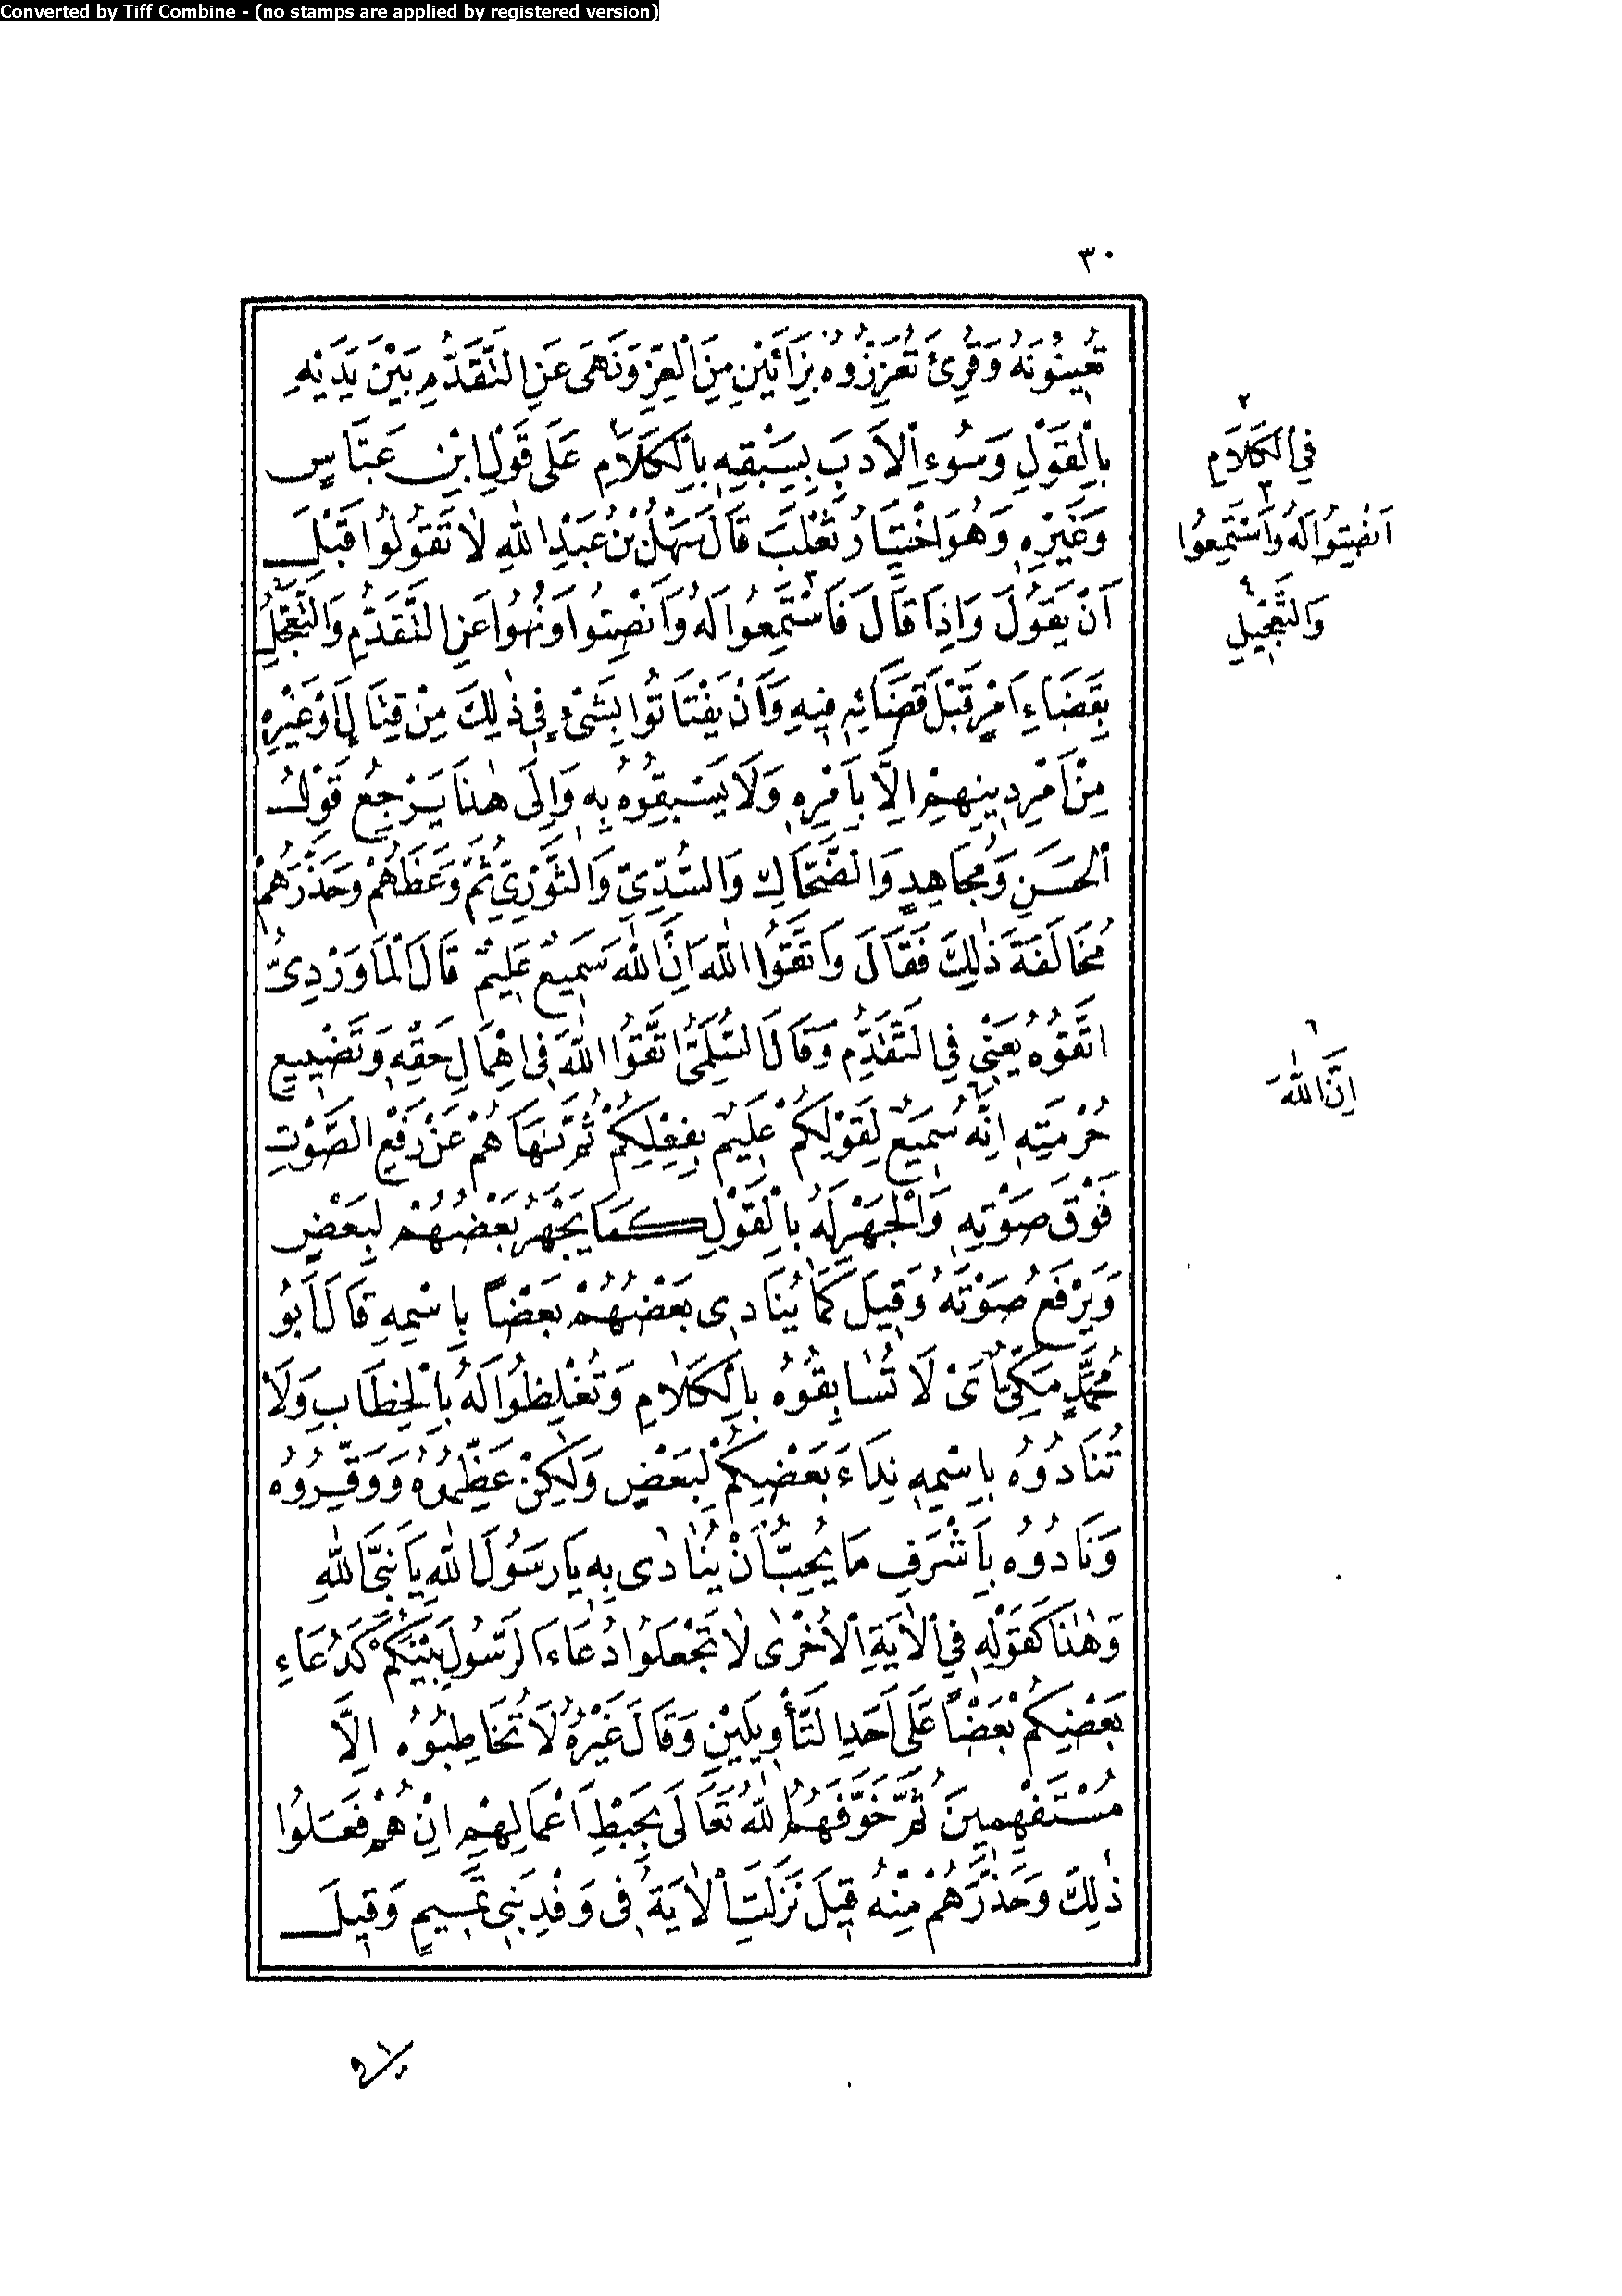 Converted by Tiff Combine - (no stamps are applied by registered version)
٣٠
تُعِينُونَهُ وَقُرِئَ تُعَزِّزُوهُ بِزَائَيْنِ مِنَ الْعِزِّ وَنَهَى عَنِ التَّقَدُّمِ بَيْنَ يَدَيْهِ
بِالْقَوْلِ وَسُوءِ الْاَدَبِ بِسَبْقِهِ بِالْكَلَامِ ٢ عَلَى قَوْلِ ابْنِ عَبَّاسٍ
وَغَيْرِهِ وَهُوَ اخْتِيَارُ ثَعْلَبَ قَالَ سَهْلُ بْنُ عَبْدِ اللهِ لَا تَقُولُوا قَبْلَ
اَنْ يَقُولَ وَاِذَا قَالَ فَاسْتَمِعُوا ٣ لَهُ وَاَنْصِتُوا وَنُهُوا عَنِ التَّقَدُّمِ وَالتَّعَجُّلِ ٤
بِقَضَاءِ اَمْرٍ قَبْلَ قَضَائِهِ فِيهِ وَاَنْ يَفْتَاتُوا بِشَىْءٍ فِى ذٰلِكَ مِنْ قِتَالٍ اَوْ غَيْرِهِ
مِنْ اَمْرِ دِينِهِمْ اِلَّا بِاَمْرِهِ وَلَا يَسْبِقُوهُ بِهِ وَاِلَى هٰذَا يَرْجِعُ قَوْلُ
الْحَسَنِ وَمُجَاهِدٍ وَالضَّحَّاكِ وَالسُّدِّىِّ وَالثَّوْرِىِّ ثُمَّ وَعَظَهُمْ وَحَذَّرَهُمْ
مُخَالَفَةَ ذٰلِكَ فَقَالَ وَاتَّقُوا اللهَ اِنَّ اللهَ سَمِيعٌ عَلِيمٌ قَالَ الْمَاوَرْدِىُّ
اتَّقُوهُ يَعْنِى فِى التَّقَدُّمِ وَقَالَ السُّلَمِىُّ اتَّقُوا اللهَ فِى اِهْمَالِ حَقِّهِ وَتَضْيِيعِ
حُرْمَتِهِ اِنَّهُ ٦ سَمِيعٌ لِقَوْلِكُمْ عَلِيمٌ بِفِعْلِكُمْ ثُمَّ نَهَاهُمْ عَنْ رَفْعِ الصَّوْتِ
فَوْقَ صَوْتِهِ وَالْجَهْرِ لَهُ بِالْقَوْلِ كَمَا يَجْهَرُ بَعْضُهُمْ لِبَعْضٍ
وَيَرْفَعُ صَوْتَهُ وَقِيلَ كَمَا يُنَادِى بَعْضُهُمْ بَعْضًا بِاسْمِهِ قَالَ اَبُو
مُحَمَّدٍ مَكِّىٌّ اَىْ لَا تُسَابِقُوهُ بِالْكَلَامِ وَتُغْلِظُوا لَهُ بِالْخِطَابِ وَلَا
تُنَادُوهُ بِاسْمِهِ نِدَاءَ بَعْضِكُمْ لِبَعْضٍ وَلٰكِنْ عَظِّمُوهُ وَوَقِّرُوهُ
وَنَادُوهُ بِاَشْرَفِ مَا يُحِبُّ اَنْ يُنَادٰى بِهِ يَا رَسُولَ اللهِ يَا نَبِىَّ اللهِ
وَهٰذَا كَقَوْلِهِ فِى الْاٰيَةِ الْاُخْرٰى لَا تَجْعَلُوا دُعَاءَ الرَّسُولِ بَيْنَكُمْ كَدُعَاءِ
بَعْضِكُمْ بَعْضًا عَلَى اَحَدِ التَّأْوِيلَيْنِ وَقَالَ غَيْرُهُ لَا تُخَاطِبُوهُ اِلَّا
مُسْتَفْهِمِينَ ثُمَّ خَوَّفَهُمُ اللهُ تَعَالَى بِحَبْطِ اَعْمَالِهِمْ اِنْ هُمْ فَعَلُوا
ذٰلِكَ وَحَذَّرَهُمْ مِنْهُ قِيلَ نَزَلَتِ الْاٰيَةُ فِى وَفْدِ بَنِى تَمِيمٍ وَقِيلَ
٢
فِى الْكَلَامِ
٣
اَنْصِتُوا لَهُ وَاسْتَمِعُوا
٤
وَالتَّعْجِيلِ
٦
اِنَّ اللهَ